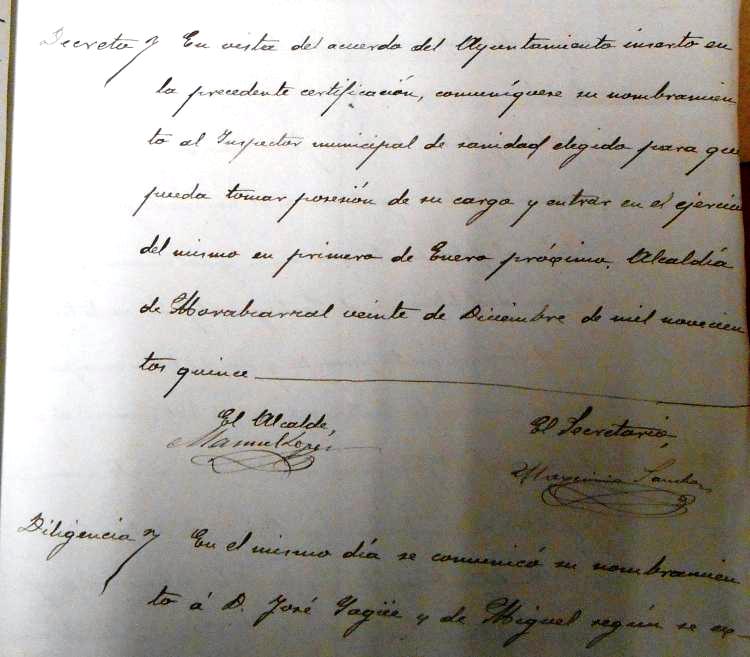 Decreto En vista del acuerdo del Ayuntamiento inserto en
la precedente certificación, comuníquese su nombramien
to al Inspector municipal de sanidad elegido para que
pueda tomar posesión de su cargo y entrar en el ejercicio
del mismo en primero de Enero próximo. Alcaldía
de veinte de Diciembre de mil novecien
tos quince
El Alcalde, El Secretario,
Manuel López
Maximino Sanchez
Diligencia En el mismo día se comunicó su nombramien
to á D. José Yagüe y de Miguel según se ex-